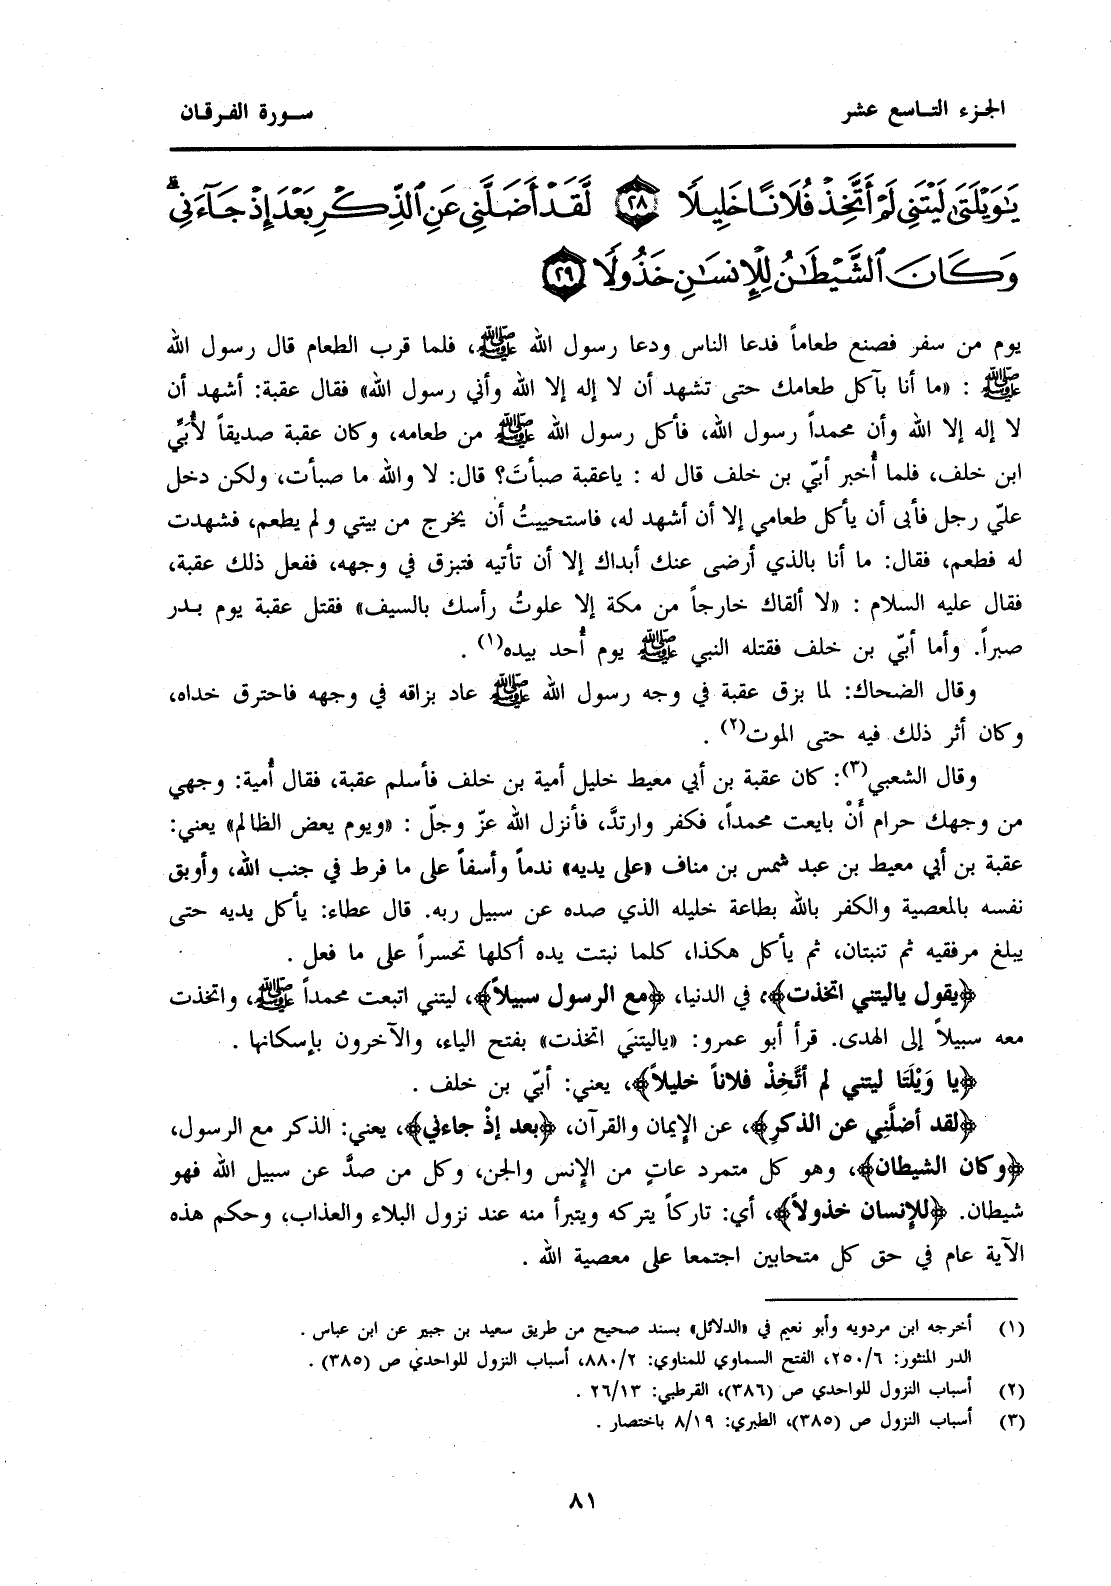 الجزء التاسع عشر
سورة الفرقان
يَٰوَيۡلَتَىٰ لَيۡتَنِي لَمۡ أَتَّخِذۡ فُلَانًا خَلِيلٗا ٢٨ لَّقَدۡ أَضَلَّنِي عَنِ ٱلذِّكۡرِ بَعۡدَ إِذۡ جَآءَنِيۗ
وَكَانَ ٱلشَّيۡطَٰنُ لِلۡإِنسَٰنِ خَذُولٗا ٢٩
يوم من سفر فصنع طعاماً فدعا الناس ودعا رسول الله ﷺ، فلما قرب الطعام قال رسول الله
ﷺ : «ما أنا بآكل طعامك حتى تشهد أن لا إله إلا الله وأني رسول الله» فقال عقبة: أشهد أن
لا إله إلا الله وأن محمداً رسول الله، فأكل رسول الله ﷺ من طعامه، وكان عقبة صديقاً لأُبَيِّ
ابن خلف، فلما أُخبر أبيّ بن خلف قال له : ياعقبة صبأتَ؟ قال: لا والله ما صبأت، ولكن دخل
عليّ رجل فأبى أن يأكل طعامي إلا أن أشهد له، فاستحييتُ أن يخرج من بيتي ولم يطعم، فشهدت
له فطعم، فقال: ما أنا بالذي أرضى عنك أبداك إلا أن تأتيه فتبزق في وجهه، ففعل ذلك عقبة،
فقال عليه السلام : «لا ألقاك خارجاً من مكة إلا علوتُ رأسك بالسيف» فقتل عقبة يوم بدر
صبراً. وأما أبيّ بن خلف فقتله النبي ﷺ يوم أُحد بيده(١) .
وقال الضحاك: لما بزق عقبة في وجه رسول الله ﷺ عاد بزاقه في وجهه فاحترق خداه،
وكان أثر ذلك فيه حتى الموت(٢) .
وقال الشعبي(٣): كان عقبة بن أبي معيط خليل أمية بن خلف فأسلم عقبة، فقال أُمية: وجهي
من وجهك حرام أَنْ بايعت محمداً، فكفر وارتدَّ، فأنزل الله عزّ وجلّ : «ويوم يعض الظالم» يعني:
عقبة بن أبي معيط بن عبد شمس بن مناف «على يديه» ندماً وأسفاً على ما فرط في جنب الله، وأوبق
نفسه بالمعصية والكفر بالله بطاعة خليله الذي صده عن سبيل ربه. قال عطاء: يأكل يديه حتى
يبلغ مرفقيه ثم تنبتان، ثم يأكل هكذا، كلما نبتت يده أكلها تحسراً على ما فعل .
﴿يقول ياليتني اتخذت﴾، في الدنيا، ﴿مع الرسول سبيلاً﴾، ليتني اتبعت محمداً ﷺ، واتخذت
معه سبيلاً إلى الهدى. قرأ أبو عمرو: «ياليتنيَ اتخذت» بفتح الياء، والآخرون بإسكانها .
﴿يا وَيْلَتَا ليتني لم أتَّخِذْ فلاناً خليلاً﴾، يعني: أبيّ بن خلف .
﴿لقد أضلَّنِي عن الذكرِ﴾، عن الإيمان والقرآن، ﴿بعد إذْ جاءني﴾، يعني: الذكر مع الرسول،
﴿وكان الشيطان﴾، وهو كل متمرد عاتٍ من الإنس والجن، وكل من صدَّ عن سبيل الله فهو
شيطان. ﴿للإنسان خذولاً﴾، أي: تاركاً يتركه ويتبرأ منه عند نزول البلاء والعذاب، وحكم هذه
الآية عام في حق كل متحابين اجتمعا على معصية الله .
(١) أخرجه ابن مردويه وأبو نعيم في «الدلائل» بسند صحيح من طريق سعيد بن جبير عن ابن عباس .
الدر المنثور: ٢٥٠/٦، الفتح السماوي للمناوي: ٨٨٠/٢، أسباب النزول للواحدي ص (٣٨٥) .
(٢) أسباب النزول للواحدي ص (٣٨٦)، القرطبي: ٢٦/١٣ .
(٣) أسباب النزول ص (٣٨٥)، الطبري: ٨/١٩ باختصار .
٨١